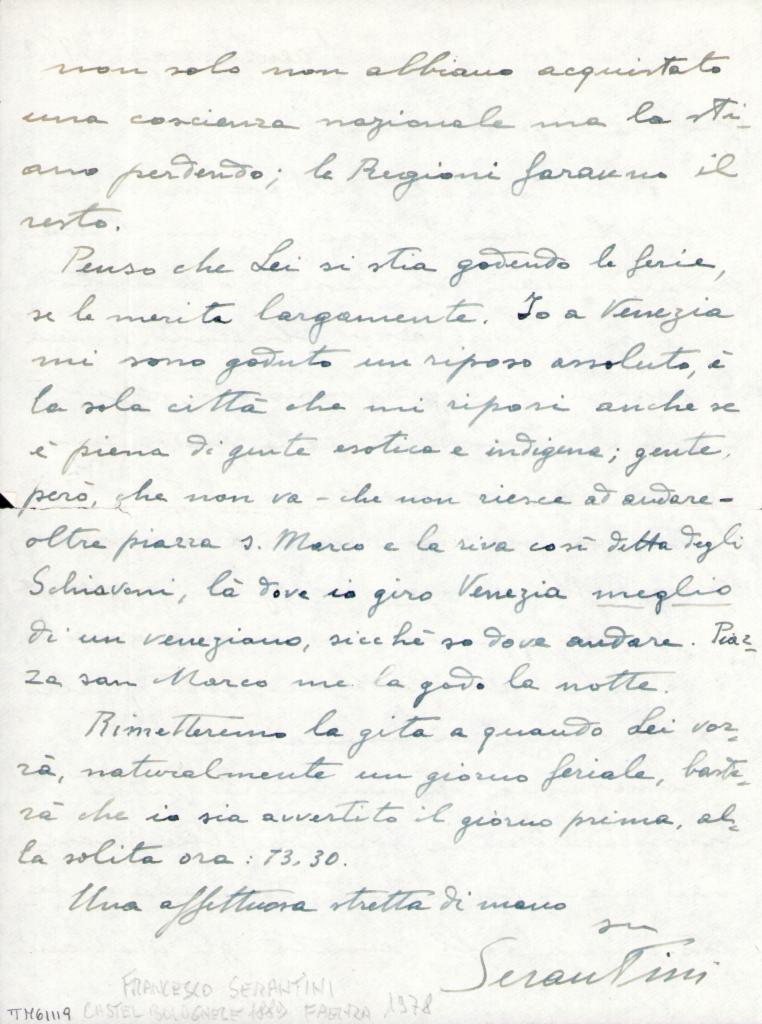 non solo non abbiano acquistato
una coscienza nazionale ma la sti-
ano perdendo; le Regioni faranno il
resto.
Penso che Lei si stia godendo le ferie,
se le merita largamente. Io a Venezia
mi sono goduto un riposo assoluto, è
la sola città che mi riposi anche se
è piena di gente esotica e indigena; gente,
però, che non va - che non riesce ad andare -
oltre piazza S. Marco e la riva così detta degli
Schiavoni, là dove io giro Venezia meglio
di un veneziano, sicchè so dove andare. Piaz-
za san Marco me la godo la notte.
Rimetteremo la gita a quando Lei vor-
rà, naturalmente un giorno feriale, baste-
rà che io sia avvertito il giorno prima, al-
la solita ora: 13,30.
Una affettuosa stretta di mano
suo
Serantini
FRANCESCO SERANTINI
TM61119 CASTEL BOLOGNESE 1889 FAENZA 1978